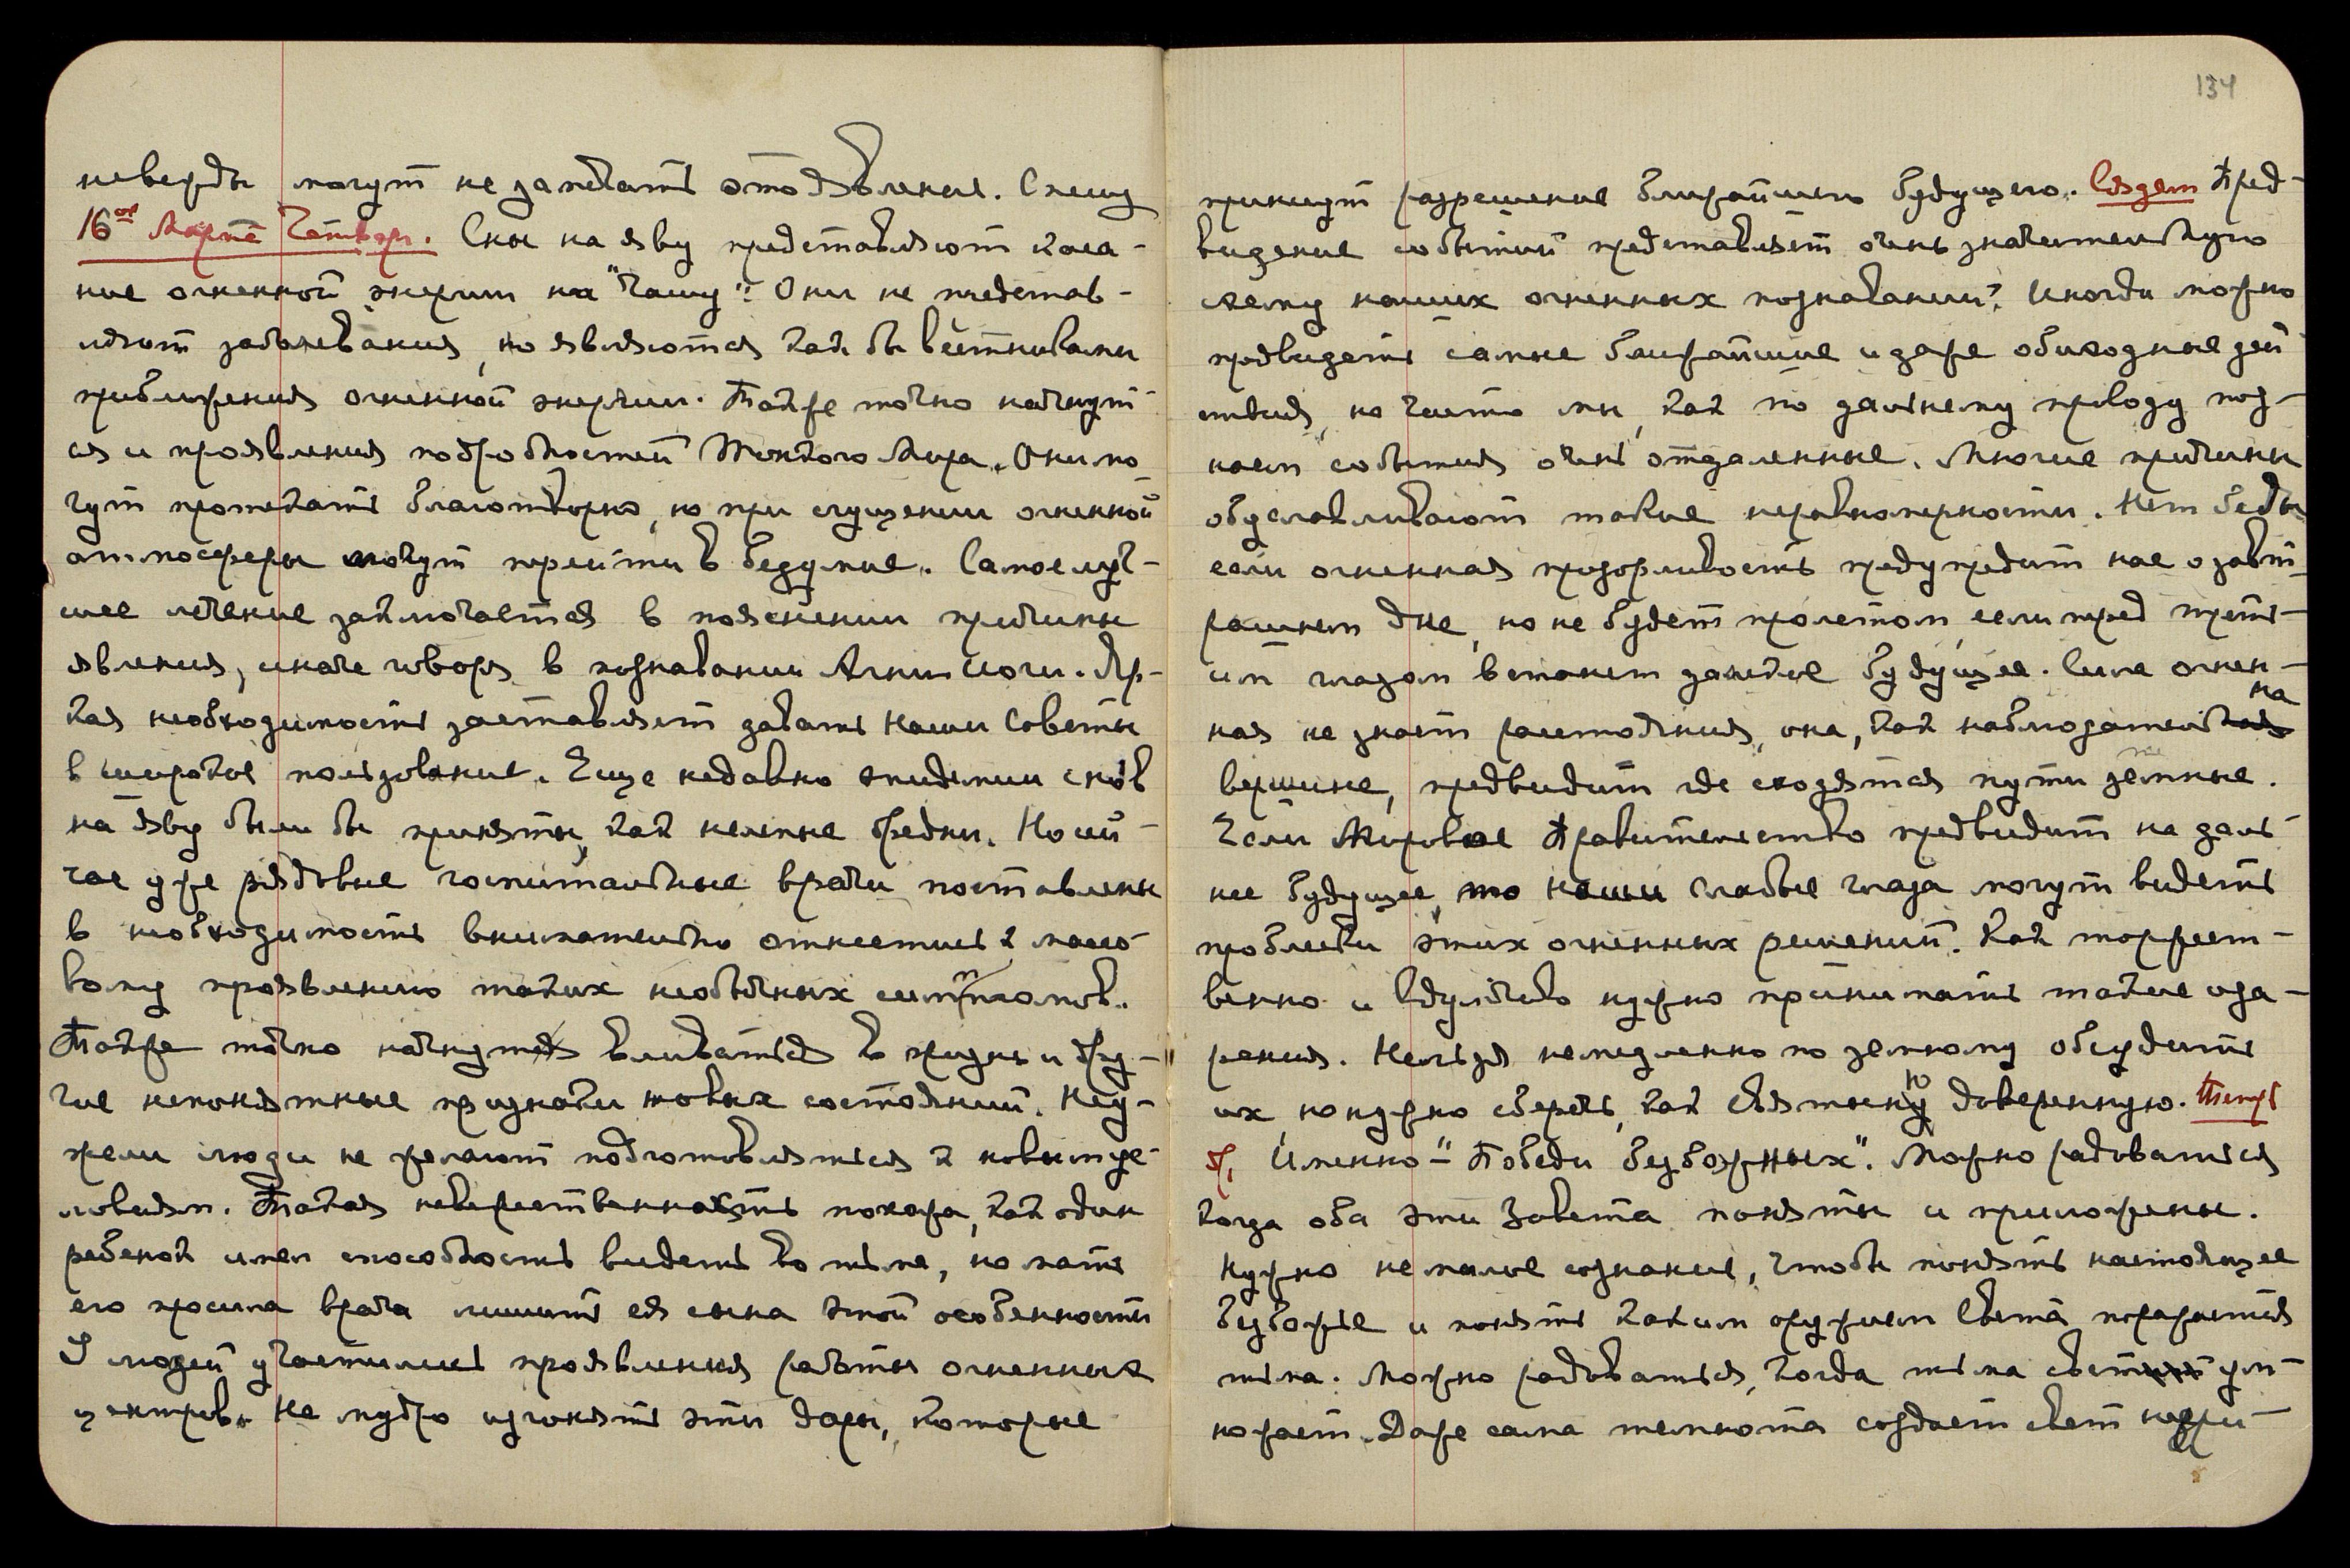 неверды могут не замечать отожвления. Спешу
16ое Марта Четверг. Сны на яву представляют каса-
ние огненной энергии на "Чашу". Они не представ-
ляют заболевания, но являются как бы вестниками
приближения огненной энергии. Также точно начнут-
ся и проявления подробностей Тонкого Мира. Они мо-
гут протекать благотворно, но при сгущении огненной
атмосферы могут перейти в безумие. Самое луч-
шее лечение заключается в пояснении причины
явления, иначе говоря в познавании Агни Йоги. Яр-
кая необходимость заставляет давать Наши Советы
в широкое пользование. Еще недавно эпидемии снов
на яву были бы приняты, как нелепые бредни. Но сей-
час уже рядовые госпитальные врачи поставлены
в необходимость внимательно отнестись к массо-
вому проявлению таких необычных симптомов.
Также точно начнут вливаться в жизнь и дру-
гие непонятные признаки новых состояний. Неу-
жели люди не желают подготовляться к новым ус-
ловиям. Такая невежественность похожа, как один
ребенок имел способность видеть во тьме, но мать
его просила врача лишить ея сына этой особенности
У людей участились проявления работы огненных
центров. Не мудро изгонять эти дары, которые
134
принесут разрешение ближайшего будущего. Сядем Пред-
видение событий представляет очень значительную
схему наших огненных познаваний. Иногда можно
предвидеть самые ближайшие и даже обиходные дей
ствия, но часто мы, как по дальнему проводу поз-
наем события очень отдаленные. Многие причины
обуславливают такие неравномерности. Нет беды
если огненная прозорливость предупредит нас о завт-
рашнем дне, но не будет пролетом, если пред треть-
им глазом встанет далекое будущее. Сила огнен-
ная не знает расстояния, она, как наблюдатель на
вершине, предвидит где сходятся пути земные.
Если Мировое Правительство предвидит на даль-
нее будущее, то наши слабые глаза могут видеть
проблески этих огненных решений. Как торжест-
венно и вдумчиво нужно принимать такие оза-
рения. Нельзя немедленно по земному обсудить
их, но нужно сберечь, как святыню доверенную. Теперь
др. Именно - "Победи безбожных". Можно радоваться
когда оба эти Завета поняты и приложены.
Нужно не малое сознание, чтобы понять настоящее
безбожье и понять каким оружием Света поражается
тьма. Можно радоваться, когда тьма свет ум-
ножает. Даже сама темнота создает свет